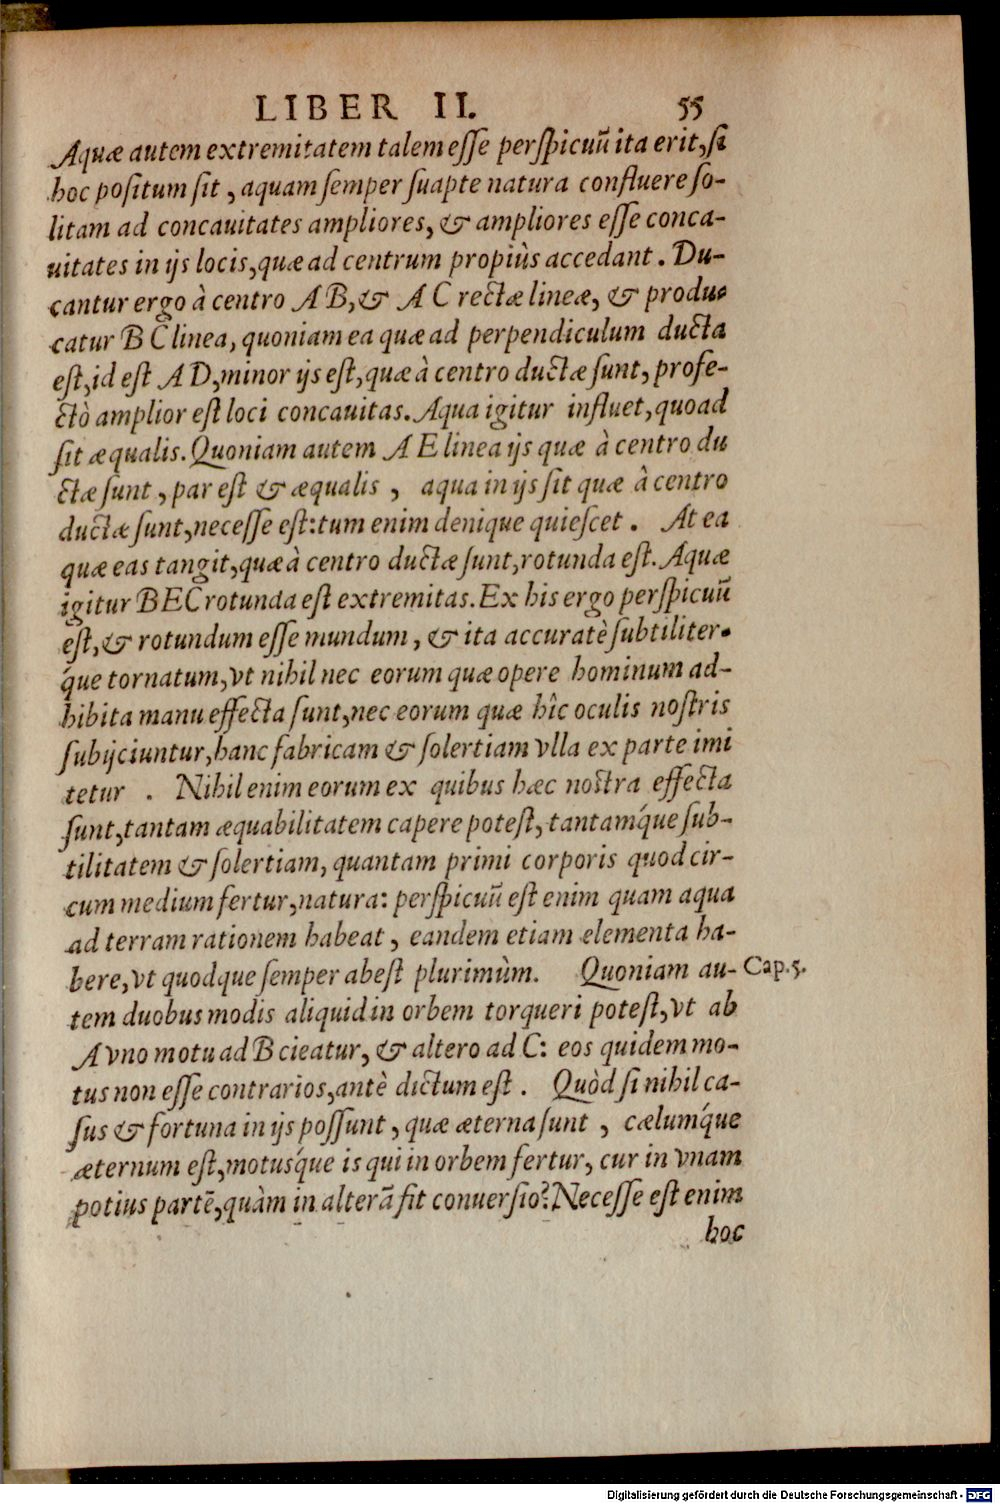 LIBER II. 55
Aquæ autem extremitatem talem esse perspicuũ ita erit, si
hoc positum sit, aquam semper suapte natura confluere so-
litam ad concauitates ampliores, & ampliores esse conca-
uitates in ijs locis, quæ ad centrum propiùs accedant. Du-
cantur ergo à centro A B, & A C rectæ lineæ, & produ-
catur B C linea, quoniam ea quæ ad perpendiculum ducta
est, id est A D, minor ijs est, quæ à centro ductæ sunt, profe-
ctò amplior est loci concauitas. Aqua igitur influet, quoad
sit æqualis. Quoniam autem A E linea ijs quæ à centro du
ctæ sunt, par est & æqualis, aqua in ijs sit quæ à centro
ductæ sunt, necesse est: tum enim denique quiescet. At ea
quæ eas tangit, quæ à centro ductæ sunt, rotunda est. Aquæ
igitur BEC rotunda est extremitas. Ex his ergo perspicuũ
est, & rotundum esse mundum, & ita accuratè subtiliter-
q́ue tornatum, vt nihil nec eorum quæ opere hominum ad-
hibita manu effecta sunt, nec eorum quæ hîc oculis nostris
subijciuntur, hanc fabricam & solertiam vlla ex parte imi
tetur. Nihil enim eorum ex quibus hæc nostra effecta
sunt, tantam æquabilitatem capere potest, tantamq́ue sub-
tilitatem & solertiam, quantam primi corporis quod cir-
cum medium fertur, natura: perspicuũ est enim quam aqua
ad terram rationem habeat, eandem etiam elementa ha-
bere, vt quodque semper abest plurimùm. Quoniam au- Cap. 5.
tem duobus modis aliquid in orbem torqueri potest, vt ab
A vno motu ad B cieatur, & altero ad C: eos quidem mo-
tus non esse contrarios, antè dictum est. Quòd si nihil ca-
sus & fortuna in ijs possunt, quæ æterna sunt, cælumq́ue
æternum est, motusq́ue is qui in orbem fertur, cur in vnam
potius partẽ, quàm in alterã fit conuersio? Necesse est enim
hoc
Digitalisierung gefördert durch die Deutsche Forschungsgemeinschaft - DFG